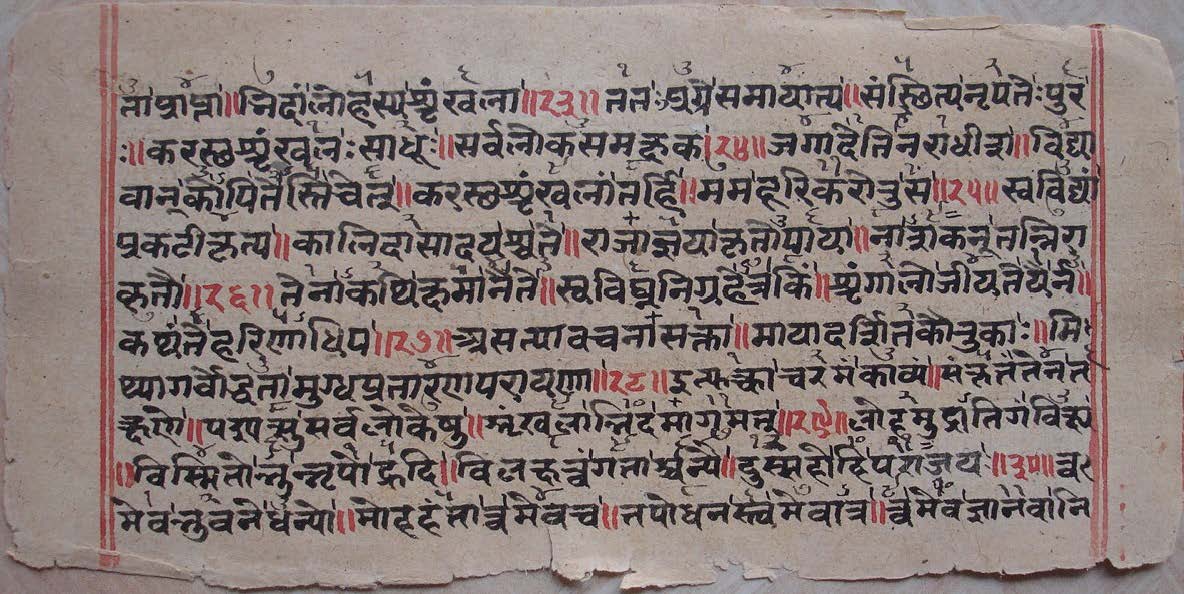 ता प्राप्ता॥ भिदां लोहस्य शृंखला॥२३॥ ततः प्रगे समायात्य॥ संस्थित्य नृपतेः पुर
ः॥ करस्थशृंखलः साधुः॥ सर्वलोकसमक्षकं॥२४॥ जगादेति नराधीश॥ विद्या
वान् कोपि तेस्ति चेत्॥ करस्थशृंखलां तर्हि॥ मम हरि करोतु स॥२५॥ स्वविद्यां
प्रकटीकृत्य॥ कालिदासादयश्च ते॥ राजाज्ञया कृतोपाया॥ नाशकन् तन्निग
कृतौ॥२६॥ तेनाकथि क्षमानेते॥ स्वविघ्ननिग्रहेत्र किं॥ शृंगालो जीयते येनी॥
कथ्यंते हरिणाधिप॥२७॥ असत्यावचनासक्ता॥ मायादर्शितकौतुकाः॥ मि
थ्यागर्वोद्धता मुग्धप्रतारणपरायणा॥२८॥ इत्युक्त्वा चरमं काव्यं॥ संस्कृतं तेन त
क्षणे॥ पश्यत्सु सर्वलोकेषु॥ शृंखला भिदमागमत्॥२९॥ लोहमुद्रातिगं वीक्ष्य
॥ विस्मितोन्तर्नृपो हृदि॥ विलक्षत्वं गताश्चान्ये॥ दुस्सहो हि पराजयः॥३०॥ त्व
मेव भुवने धन्यो॥ मोहहंता त्वमेव च॥ तपोधनस्त्वमेवात्र॥ त्वमेव ज्ञानवानि